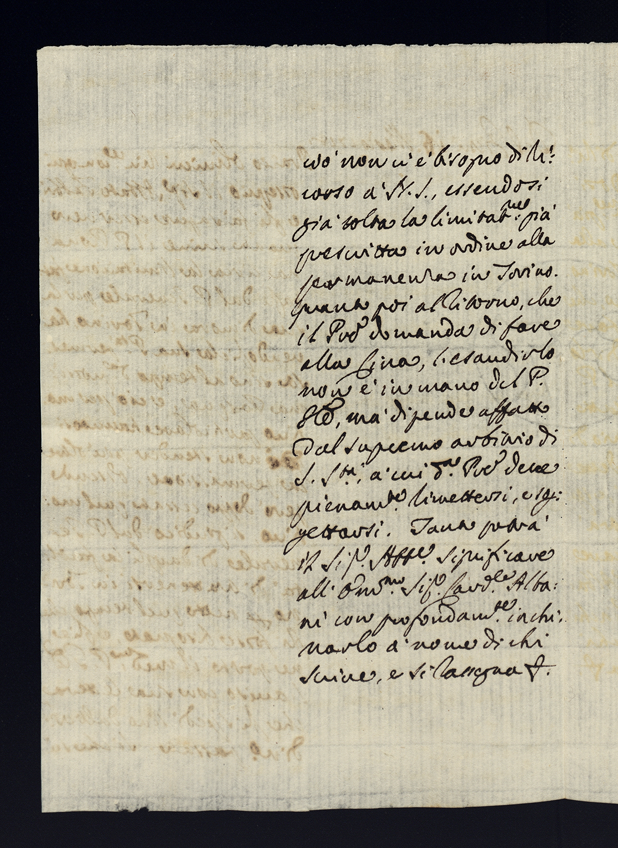 ciò non ci è bisogno di ri:
corso à N. S., essendosi
già tolta la limitat.ne già
prescritta in ordine alla
permanenza in Torino.
quanto poi al ritorno, che
il P.re domanda di fare
alla Cina, l'esaudirlo
non è in mano del P.
Gle, mà dipende affatto
dal supremo arbitrio di
S. S.tà, à cui d.o P.re deve
pienam.te rimettersi, e sog:
gettarsi. Tanto potrà
il Sig.r Abb.e significare
all'Em.mo Sig.r Card.le Alba:
ni con profondam.te inchi:
narlo à nome di chi
scrive, e si rassegna